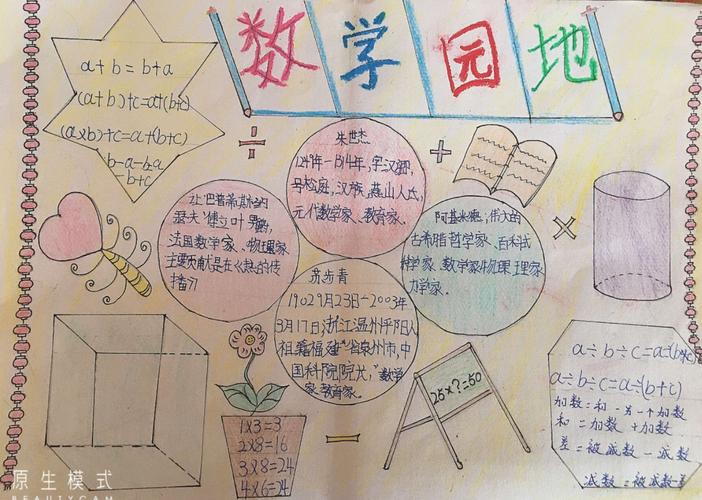 数学园地
a+b=b+a
(a+b)+c=a+(b+c)
(a×b)+c=a+(b+c)
b-a=b-a
=b+c
朱世杰
1249年-1314年,字汉卿,
号松庭,汉族,燕山人氏,
元代数学家、教育家、
让·巴普蒂斯
傅叶 男爵,
法国数学家、物理家
主要贡献是在《热的传
播》
阿基米德,伟大的
古希腊哲学家、百科式
科学家、数学家物理理家
力学家、
苏步青
1902年9月23日-2003年
3月17日浙江温州平阳人
祖籍福建省泉州市,中
国科院院
家教育家、
1×3=3
2×8=16
3×8=24
4×6=24
25×?=50
a÷b÷c=a÷(b×c)
a÷b÷c=a÷(b+c)
加数=和-另一个加数
和=加数+加数
差=被减数-减数
减数=被减数-差
÷
+
×
-
原生模式
BEAUTYCAM